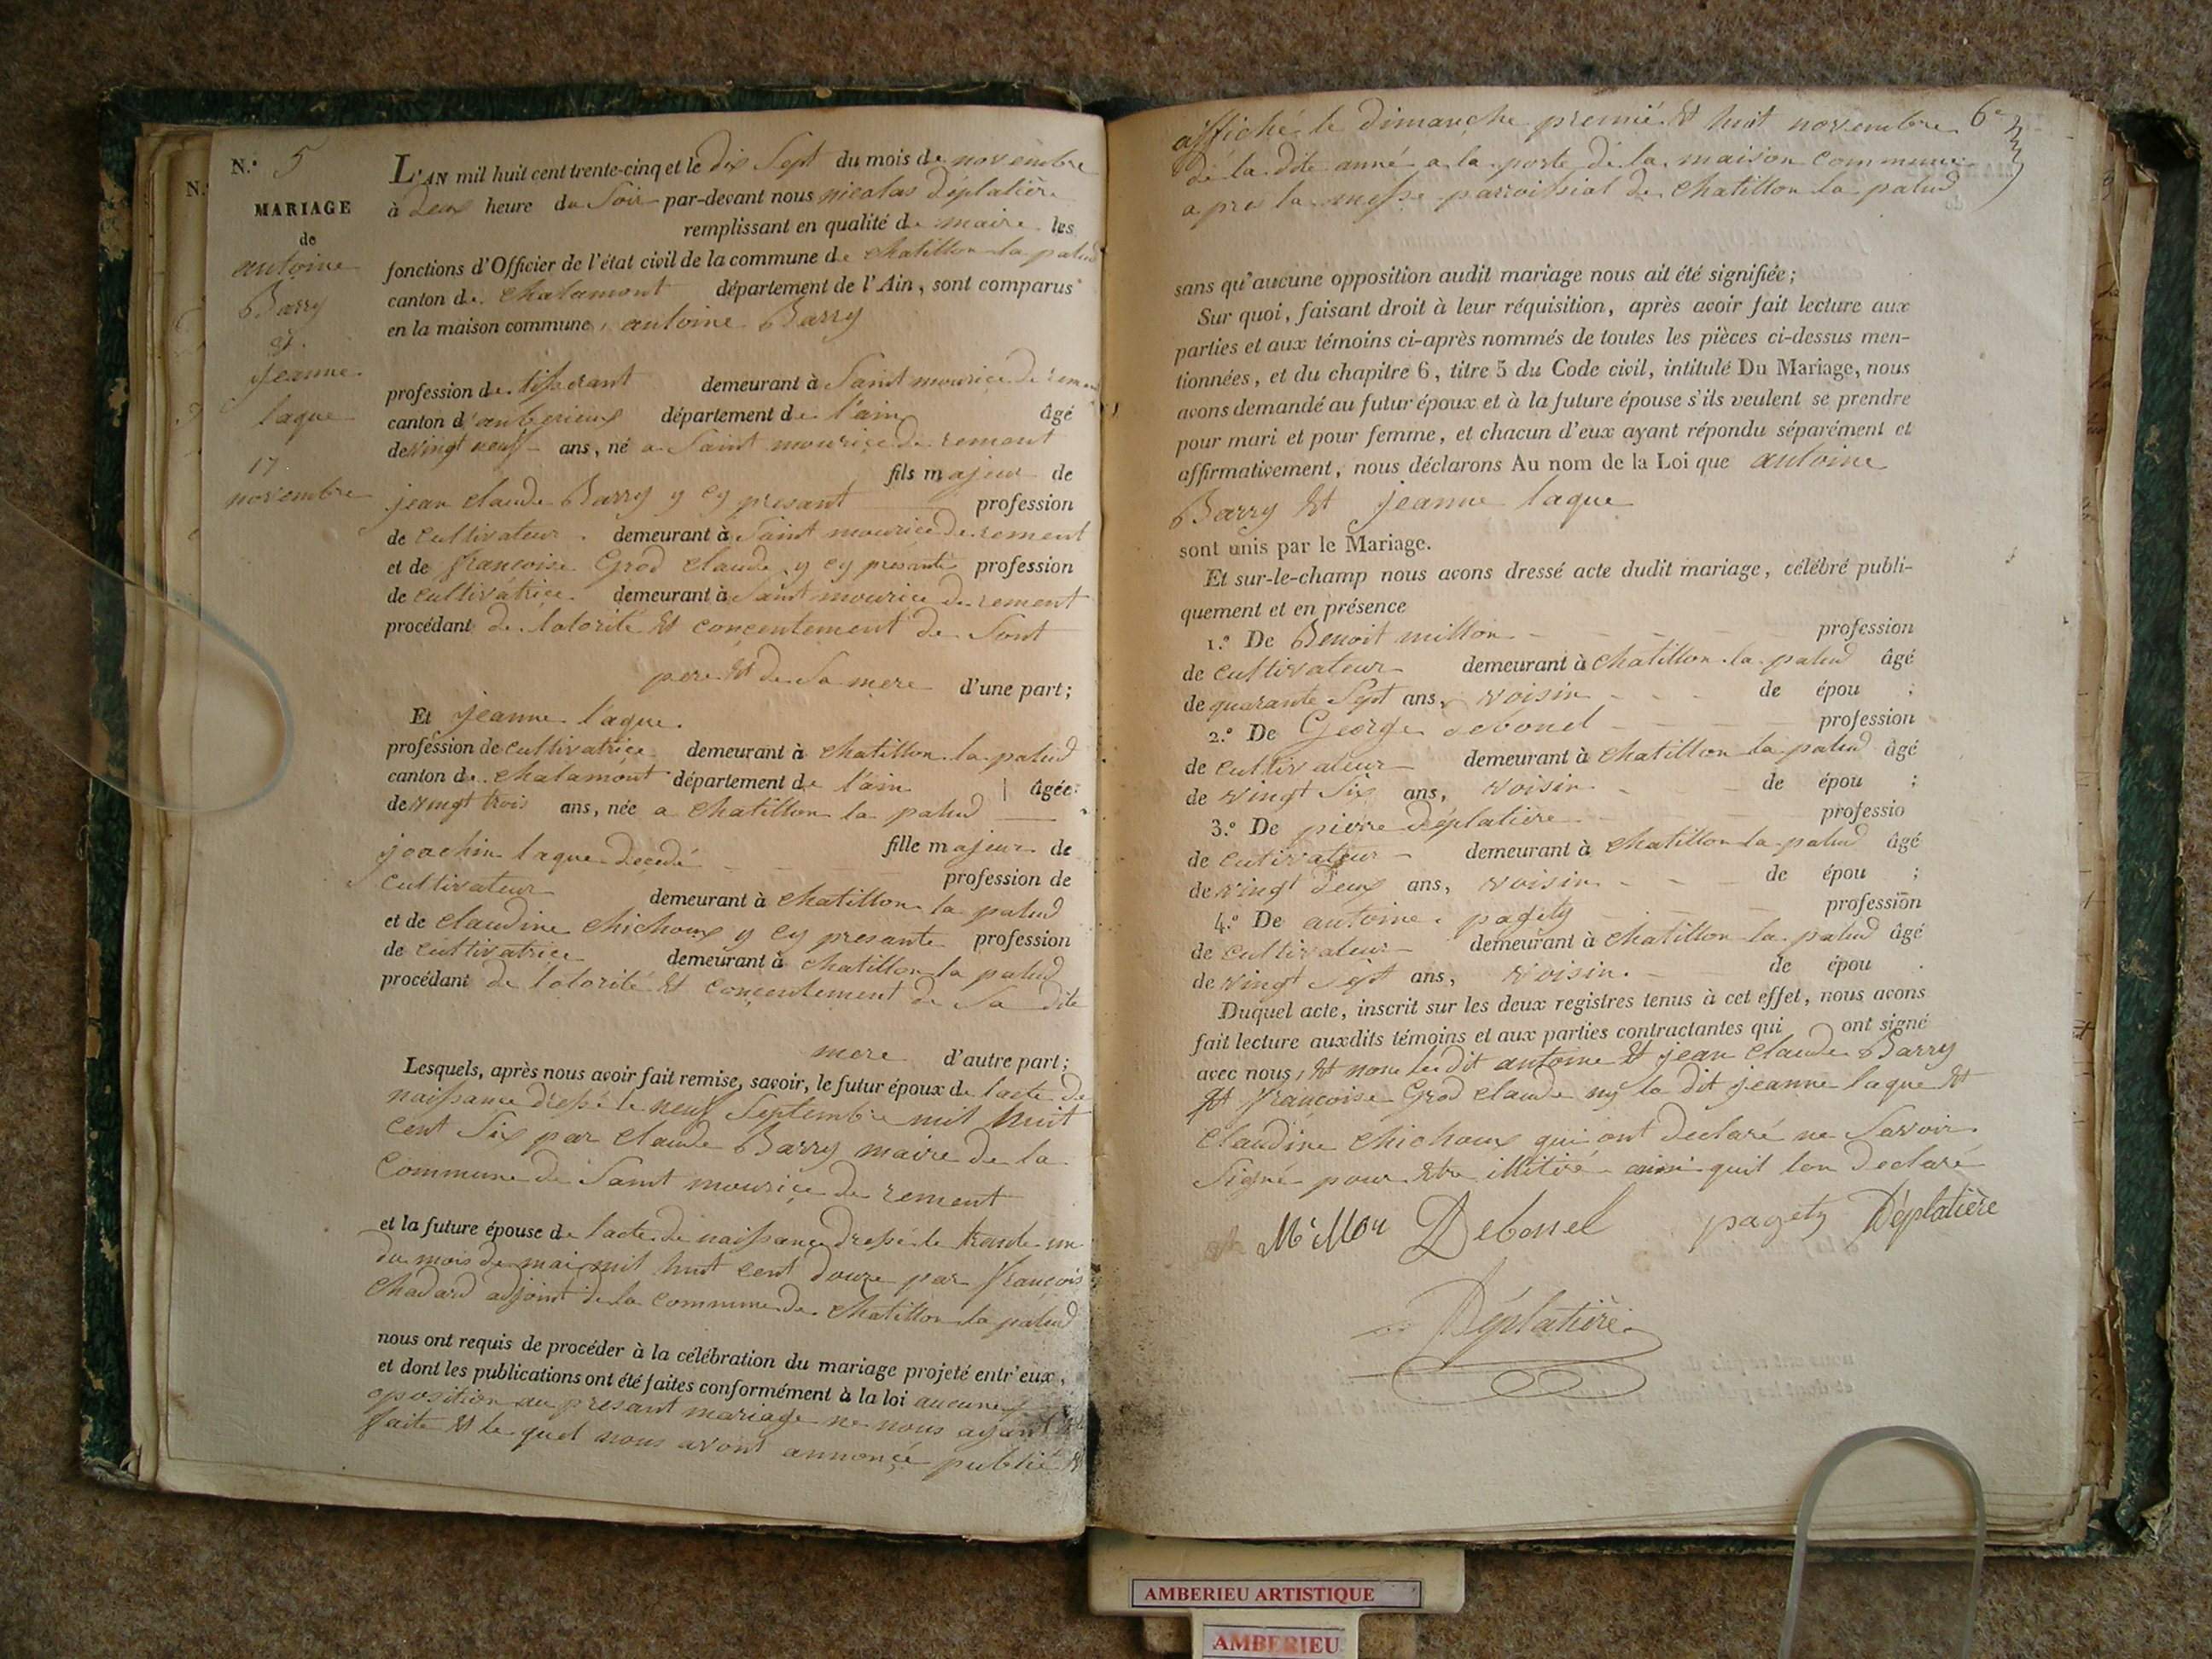 N.º 5
MARIAGE
de
antoine
Barry
et
jeanne
laque
17
novembre
N.
L'AN mil huit cent trente-cinq et le dix Sept du mois de novembre
à deux heure du Soir par-devant nous nicolas Déplatière
remplissant en qualité de maire les
fonctions d'Officier de l'état civil de la commune de chatillon la palud
canton de chalamont département de l'Ain, sont comparus
en la maison commune, antoine Barry
profession de tisserant demeurant à Saint mourice de
canton d'anberieux département de l'ain âgé
de vingt neuf ans, né a Saint mourice de rement
fils majeur de
jean claude Barry y cy presant profession
de cultivateur demeurant à Saint mourice de rement
et de francoise Grod claude y cy presante profession
de cultivatrice demeurant à Saint mourice de rement
procédant de lotorite et concentement de Sont
pere et de Sa mere d'une part;
Et jeanne laque
profession de cultivatrice demeurant à chatillon la palud
canton de chalamont département de l'ain âgée
de vingt trois ans, née a chatillon la palud
fille majeur de
joachin laque decedé profession de
cultivateur demeurant à chatillon la palud
et de claudine chichoux y cy presante profession
de cultivatrice demeurant à chatillon la palud
procédant de lotorité et concentement de Sa dite
mere d'autre part;
Lesquels, après nous avoir fait remise, savoir, le futur époux de lacte de
naissance dressé le neuf Septembre mil huit
cent Six par claude Barry maire de la
commune de Saint mourice de rement
et la future épouse de lacte de naissance dressé le trente un
du mois de mai mil huit cent douze par françois
chadard adjoint de la commune de chatillon la palud
nous ont requis de procéder à la célébration du mariage projeté entr'eux,
et dont les publications ont été faites conformément à la loi aucune
oposition au presant mariage ne nous ayant
faite et le quel nous avont annoncé publié et
affiché le dimanche premié et huit novembre 6e
de la dite anné a la porte de la maison commune
apres la messe parroissial de chatillon la palud
sans qu'aucune opposition audit mariage nous ait été signifiée;
Sur quoi, faisant droit à leur réquisition, après avoir fait lecture aux
parties et aux témoins ci-après nommés de toutes les pièces ci-dessus men-
tionnées, et du chapitre 6, titre 5 du Code civil, intitulé Du Mariage, nous
avons demandé au futur époux et à la future épouse s'ils veulent se prendre
pour mari et pour femme, et chacun d'eux ayant répondu séparément et
affirmativement, nous déclarons Au nom de la Loi que antoine
Barry et jeanne laque
sont unis par le Mariage.
Et sur-le-champ nous avons dressé acte dudit mariage, célébré publi-
quement et en présence
1.º De Benoit millon profession
de cultivateur demeurant à chatillon la palud âgé
de quarante Sept ans, voisin de épou ;
2.º De George debonel profession
de cultivateur demeurant à chatillon la palud âgé
de vingt Six ans, voisin de épou ;
3.º De pierre Déplatière professio
de cutivateur demeurant à chatillon la palud âgé
de vingt deux ans, voisin de épou ;
4.º De antoine pagety profession
de cultivateur demeurant à chatillon la palud âgé
de vingt Sept ans, voisin de épou .
Duquel acte, inscrit sur les deux registres tenus à cet effet, nous avons
fait lecture auxdits témoins et aux parties contractantes qui ont signé
avec nous, et non le dit antoine et jean claude Barry
et francoise Grod claude ny la dit jeanne laque et
claudine chichoux qui ont declaré ne Savoir
Signé pour etre illitiré ainsi quil lon declaré
Millon Debonel pagety Déplatière
Déplatière
AMBERIEU ARTISTIQUE
AMBERIEU